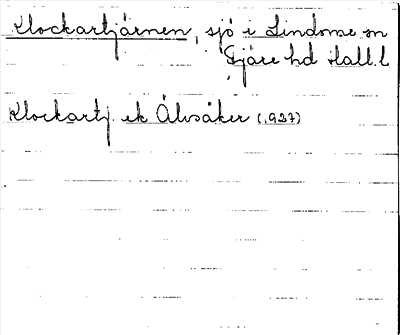 Klockartjärnen, sjö i Lindome sn
Fjäre hd Hall. l
Klockartj. ek Älvsåker (1927)